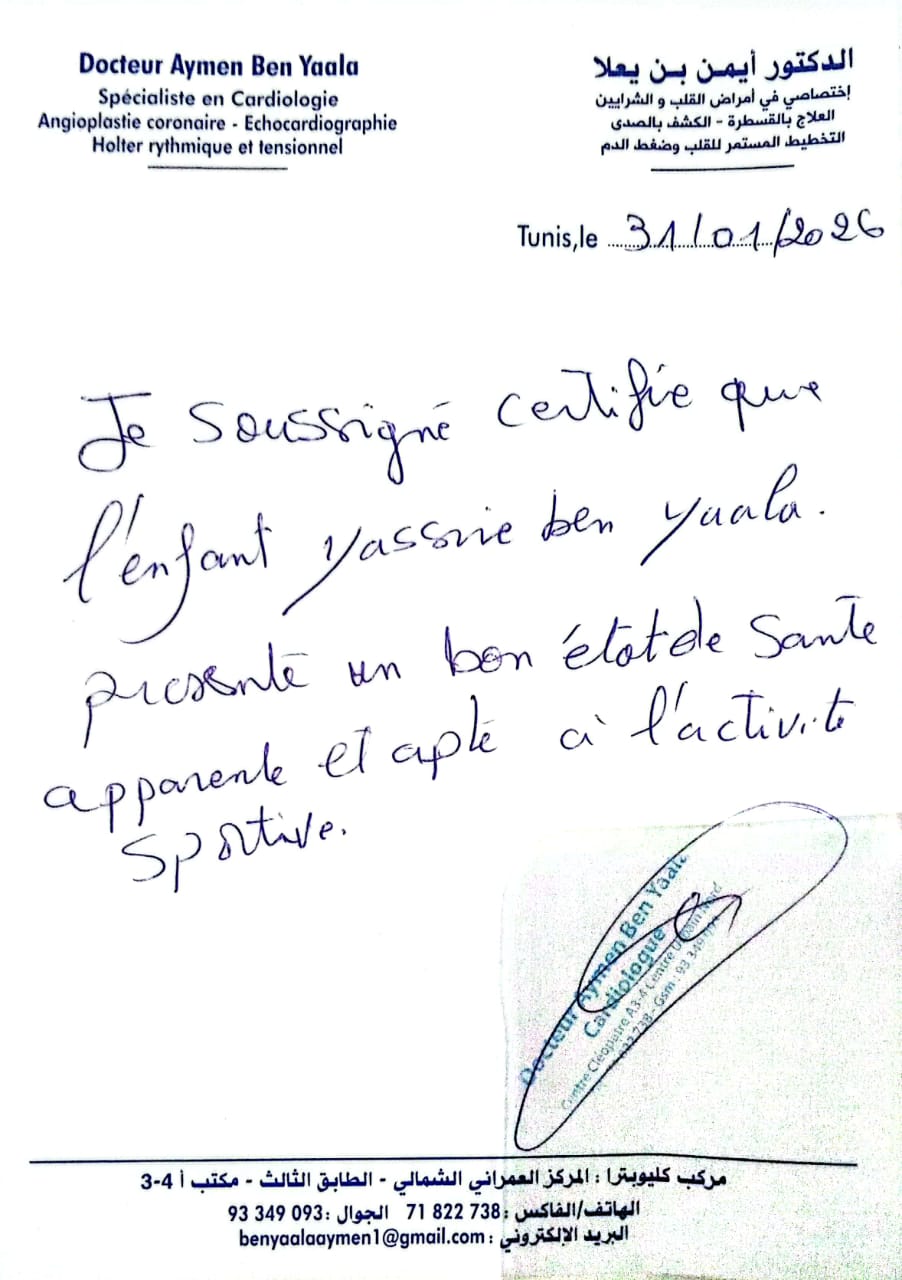 Docteur Aymen Ben Yaala
Spécialiste en Cardiologie
Angioplastie coronaire - Echocardiographie
Holter rythmique et tensionnel
الدكتور أيمن بن يعلا
إختصاصي في أمراض القلب و الشرايين
العلاج بالقسطرة - الكشف بالصدى
التخطيط المستمر للقلب وضغط الدم
Tunis,le 31/01/2026
Je soussigné certifie que
l'enfant yassine ben yaala.
présente un bon état de santé
apparente et apte à l'activité
sportive.
Docteur Aymen Ben Yaala
Cardiologue
Centre Cléopatre A3-4 Centre Urbain Nord
822 738 - Gsm : 93 349 093
مركب كليوبترا : المركز العمراني الشمالي - الطابق الثالث - مكتب أ 4-3
الهاتف/الفاكس : 71 822 738 الجوال : 93 349 093
البريد الإلكتروني : benyaalaaymen1@gmail.com